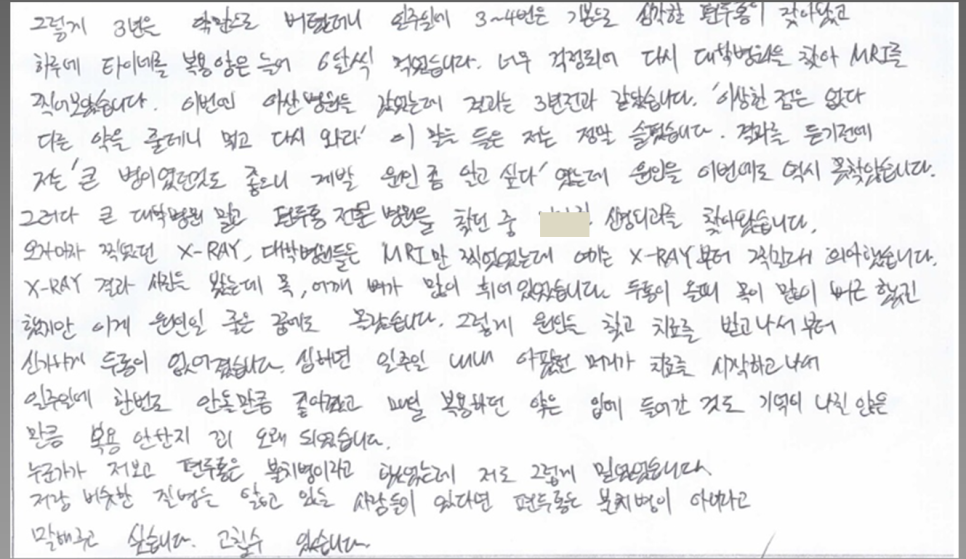 그렇게 3년은 약만으로 버텼더니 일주일에 3~4번은 기본으로 심각한 편두통이 찾아왔고
하루에 타이레를 복용양은 늘어 6알씩 먹었습니다. 너무 걱정되어 다시 대학병원을 찾아 MRI를
찍어보았습니다. 이번엔 아산병원을 갔었는데 결과는 3년전과 같았습니다. '이상한 점은 없다
다른 약을 줄테니 먹고 다시 와라' 이 말을 들은 저는 정말 슬펐습니다. 결과를 듣기전에
저는 '큰 병이였던것도 좋으니 제발 원인 좀 알고 싶다' 였는데 원인을 이번에도 역시 못찾았습니다.
그러다 큰 대학병원 말고 편두통 전문 병원을 찾던 중 신경외과를 찾아왔습니다.
오자마자 찍었던 X-RAY, 대학병원들은 MRI만 찍었었는데 여기는 X-RAY부터 찍는다해서 의아했습니다.
X-RAY 결과 사진을 봤는데 목, 어깨 뼈가 많이 휘어있었습니다. 두통이 올때 목이 많이 뻐근 했긴
했지만 이게 원인일 줄은 꿈에도 몰랐습니다. 그렇게 원인을 찾고 치료를 받고나서부터
신기하게 두통이 없어졌습니다. 심하면 일주일 내내 아팠던 머리가 치료를 시작하고나서
일주일에 한번도 안올만큼 좋아졌고 매일 복용하던 약은 입에 들어간 것도 기억이 나질 않은
만큼 복용 안한지 꽤 오래 되었습니다.
누군가가 저보고 편두통은 불치병이라고 했었는데 저도 그렇게 믿었었습니다.
저랑 비슷한 질병을 앓고 있는 사람들이 있다면 편두통은 불치병이 아니라고
말해주고 싶습니다. 고칠수 있습니다.